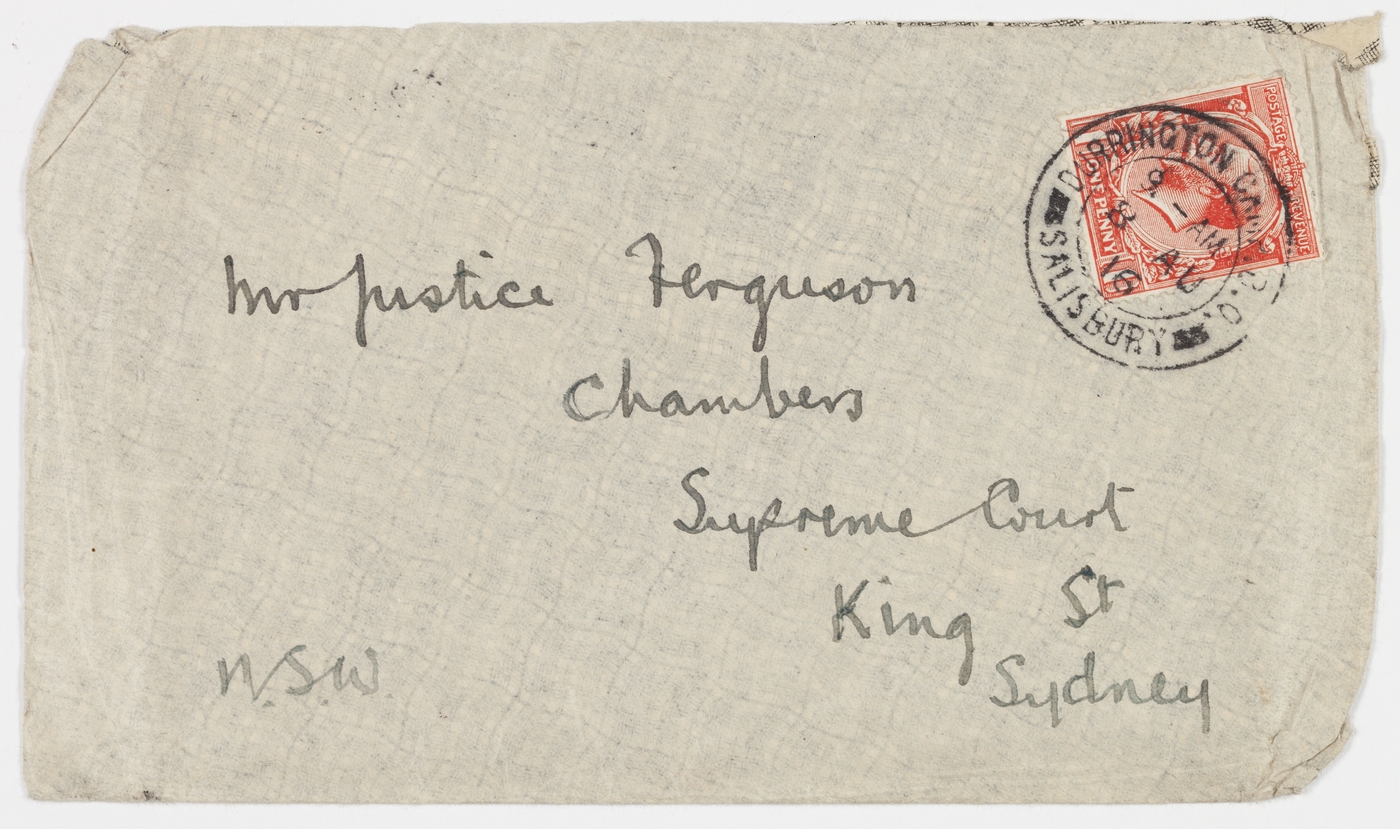 Mr Justice Ferguson
Chambers
Supreme Court
King St
Sydney
N.S.W.
POSTAGE REVENUE
ONE PENNY
DURRINGTON CAMP S.O.
SALISBURY
AM
8 AU
16